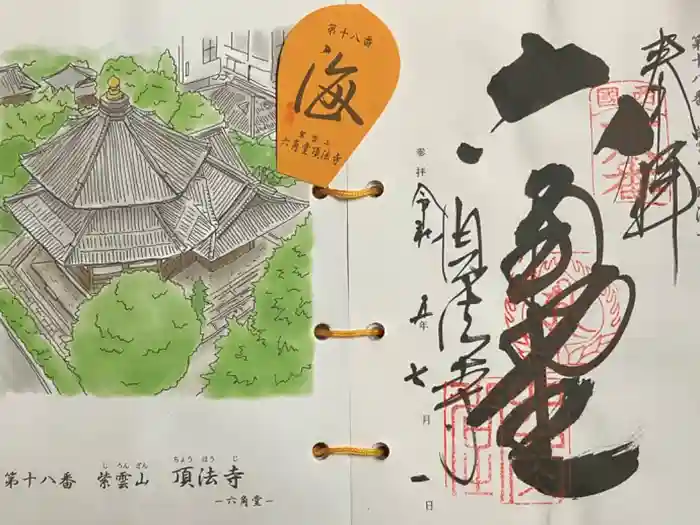 第十八番
海
紫雲山
六角堂頂法寺
し うん ざん
ちょう ほう じ
第十八番 紫雲山 頂法寺
－六角堂－
奉拝
六角堂
頂法寺
参拝 令和 五年 七月 一日